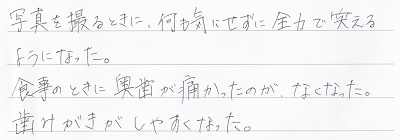 写真を撮るときに、何も気にせずに全力で笑える
ようになった。
食事のときに奥歯が痛かったのが、なくなった。
歯みがきがしやすくなった。